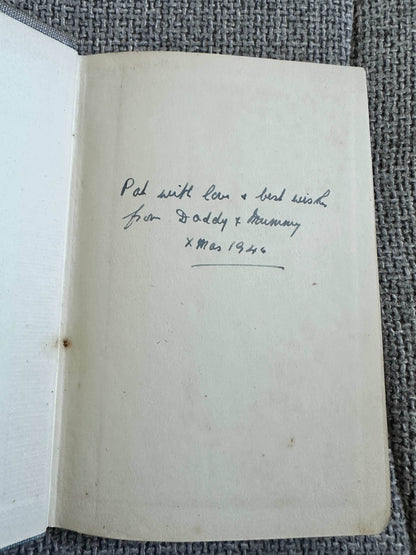 Pat with love & best wishes
from Daddy & Mummy
XMas 1946